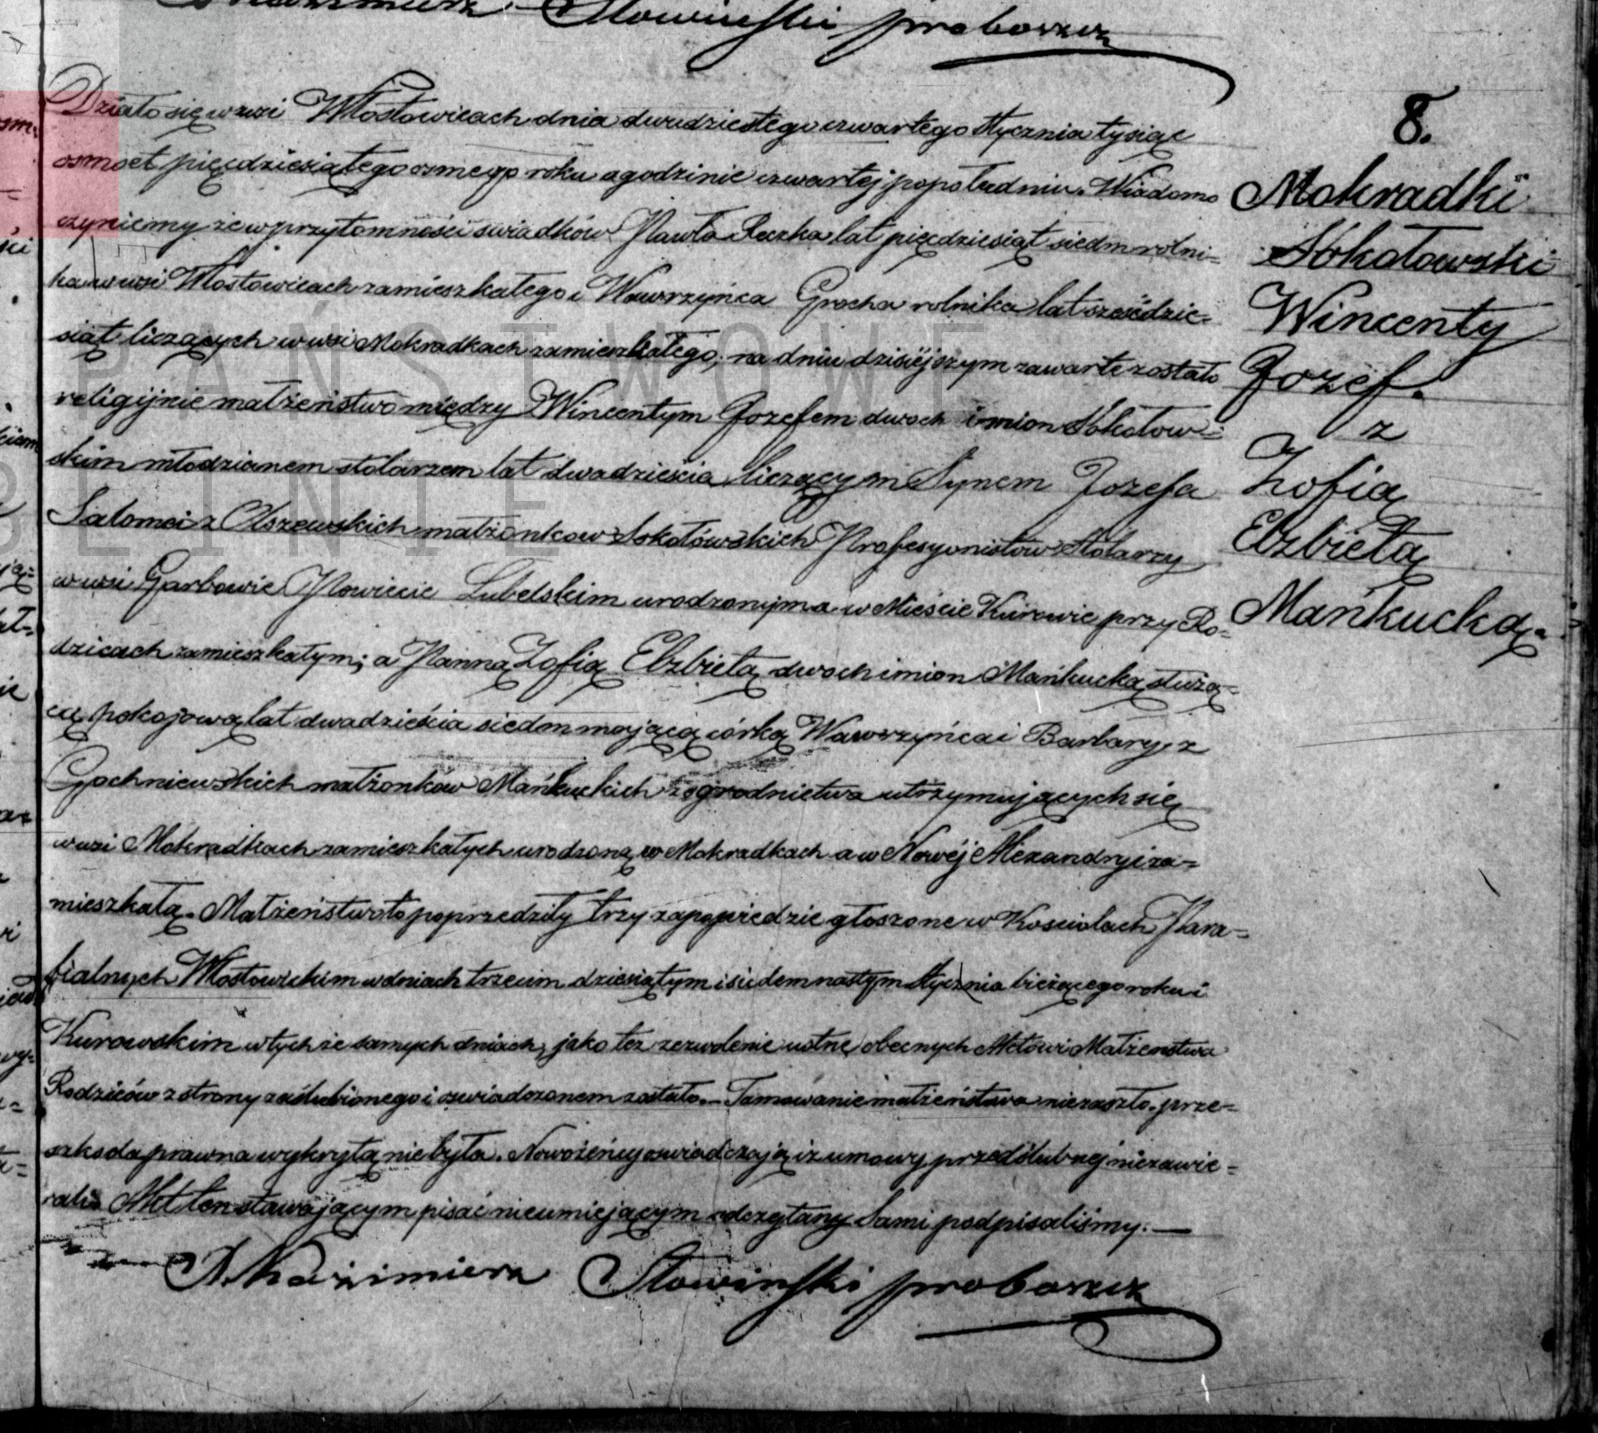 Kazimierz Słowiński proboszcz
8.
Mokradki
Sokołowski
Wincenty
Jozef.
z
Zofią
Elzbietą
Mańkucką.
Działo się w wsi Włostowicach dnia dwudziestego czwartego Stycznia tysiąc
osmset pięćdziesiątego osmego roku o godzinie czwartej popołudniu. Wiadomo
czyniemy że w przytomności swiadków Pawła Reczka lat pięćdziesiąt siedm rolni=
ka w wsi Włostowicach zamieszkałego i Wawrzyńca Grocha rolnika lat sześćdzie=
siąt liczących w wsi Mokradkach zamieszkałego; na dniu dzisiejszym zawarte zostało
religijnie małżeństwo między Wincentym Jozefem dwoch imion Sokołow=
skim młodzianem stolarzem lat dwadzieścia liczącym Synem Jozefa
Salomei z Olszewskich małżonkow Sokołowskich Profesyonistów Stolarzy
w wsi Garbowie Powiecie Lubelskim urodzonym a w Mieście Kurowie przy Ro=
dzicach zamieszkałym; a Panną Zofią Elzbietą dwoch imion Mańkucką służą=
cą pokojową lat dwadzieścia siedm mającą córką Wawrzyńca i Barbary z
Gochniewskich małżonków Mańkuckich z ogrodnictwa utrzymujących się
w wsi Mokradkach zamieszkałych urodzoną w Mokradkach a w Nowéj Alexandryi za=
mieszkałą. Małżeństwo to poprzedziły trzy zapowiedzie głoszone w Kosciołach Para=
fialnych Włostowickim w dniach trzecim dziesiątym i siedemnastym Stycznia bieżącego roku i
Kurowskim w tychże samych dniach, jako też zezwolenie ustne obecnych Aktowi Małżenstwa
Rodziców z strony zaślubionego i oswiadczonem zostało. Tamowanie małżeństwa niezaszło. prze=
szkoda prawna wykrytą nie była. Nowożeńcy oswiadczają iż umowy przedślubnej niezawie=
rali. Akt ten stawającym pisać nieumiejącym odczytany Sami podpisaliśmy.
X. Kazimierz Słowiński proboszcz
PAŃSTWOWE
BLINIE